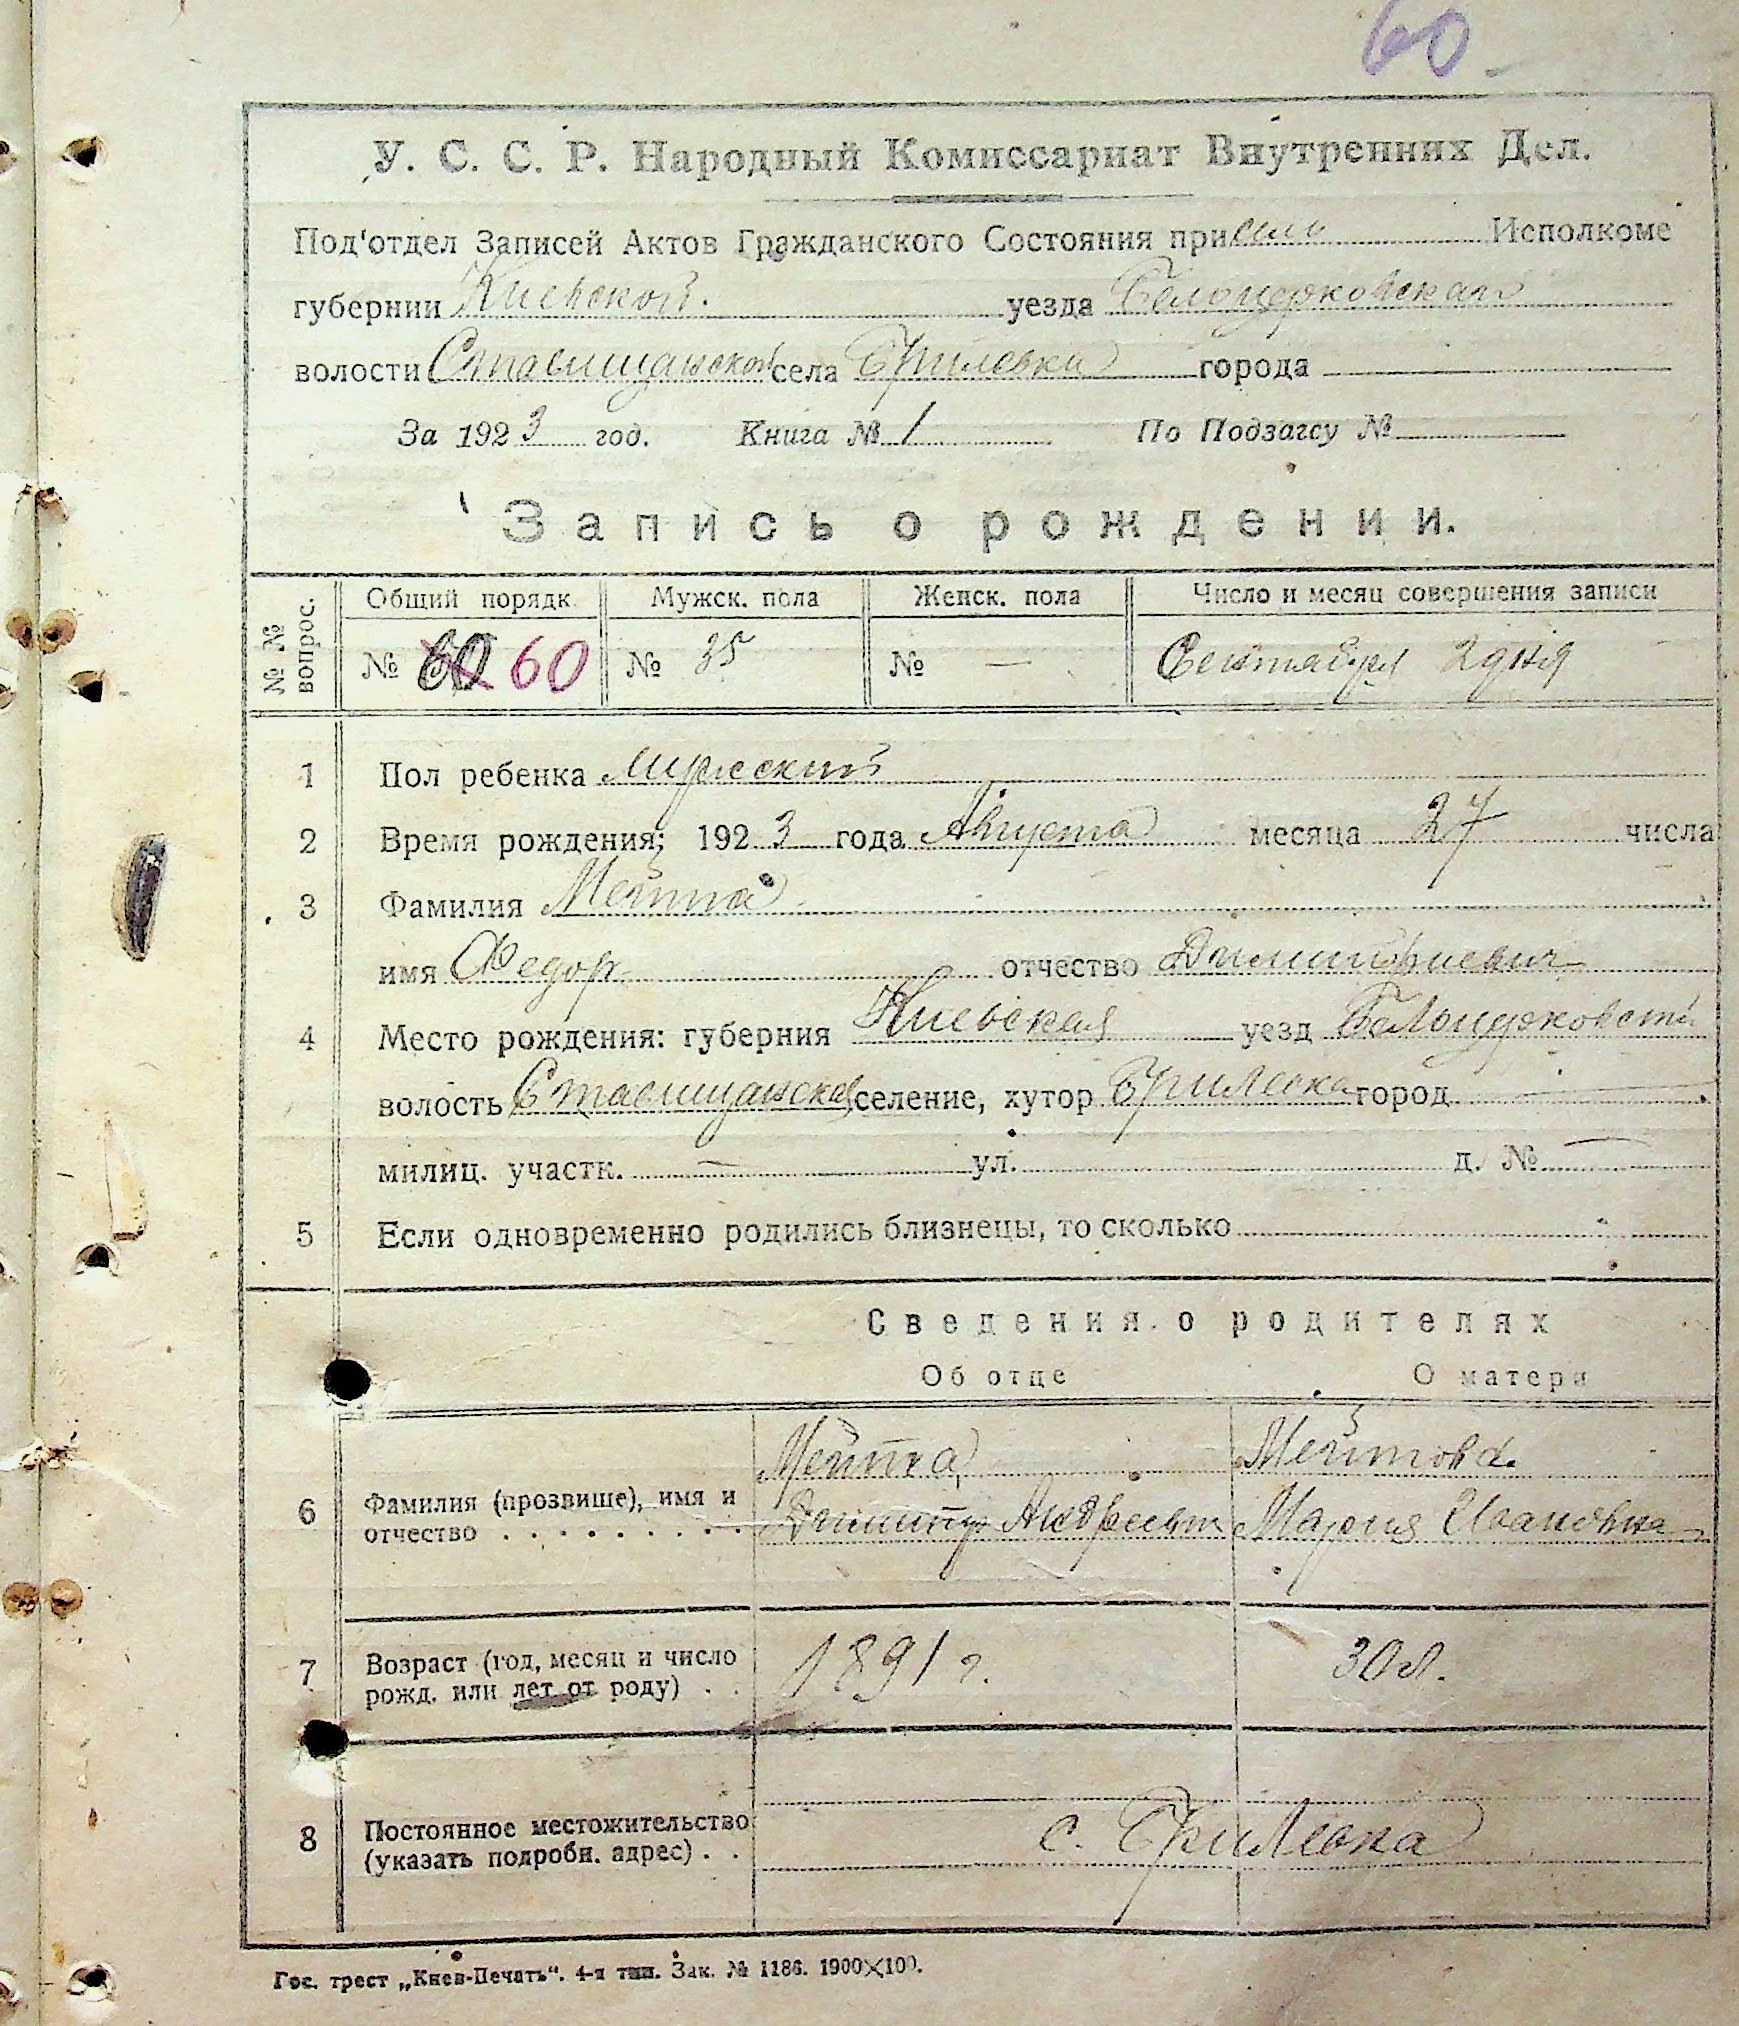 60
У. С. С. Р. Народный Комиссариат Внутренних Дел.
Под'отдел Записей Актов Гражданского Состояния при Исполкоме
губернии Киевской. уезда Белоцерковскаго
волости Ставищанской села Брилевки города
За 1923 год. Книга № 1 По Подзагсу №
Запись о рождении.
№ № вопрос.
Общий порядк. Мужск. пола Женск. пола Число и месяц совершения записи
№ 60 60 № 35 № — Сентября 2 дня
1 Пол ребенка мужской
2 Время рождения; 1923 года Августа месяца 27 числа
3 Фамилия Мейта
имя Федор отчество Димитриевич
4 Место рождения: губерния Киевская уезд Белоцерковский
волость Ставищанская селение, хутор Брилевка город —
милиц. участк. — ул. д. № —
5 Если одновременно родились близнецы, то сколько
Сведения о родителях
Об отце О матери
Мейта Мейтова
6 Фамилия (прозвище), имя и
отчество . . . . . . . . . Димитр Андреевич Мария Ивановна
7 Возраст (год, месяц и число
рожд. или лет от роду) . . 1891 г. 30 л.
8 Постоянное местожительство
(указать подробн. адрес) . . с. Брилевка
Гос. трест „Киев-Печать“. 4-я тип. Зак. № 1186. 1900×100.